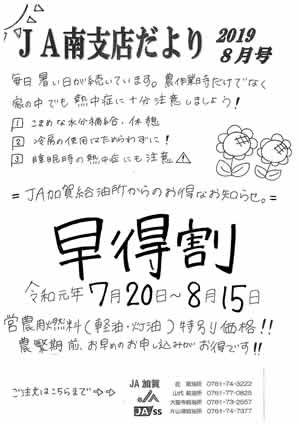 JA南支店だより
2019
8月号
毎日暑い日が続いています。農作業時だけでなく
家の中でも熱中症に十分注意しましょう！
1 こまめな水分補給・休憩
2 冷房の使用はためらわずに！
3 睡眠時の熱中症にも注意
=JA加賀給油所からのお得なお知らせ。=
早得割
令和元年 7月20日～8月15日
営農用燃料(軽油・灯油)特別価格!!
農繁期前、お早めのお申し込みがお得です!!
ご注文はこちらまで⇨⇨
JA加賀
JA
JA/SS
給油所 0761-74-3222
山代給油所 0761-77-0825
大聖寺給油所 0761-73-2657
片山津給油所 0761-74-3377